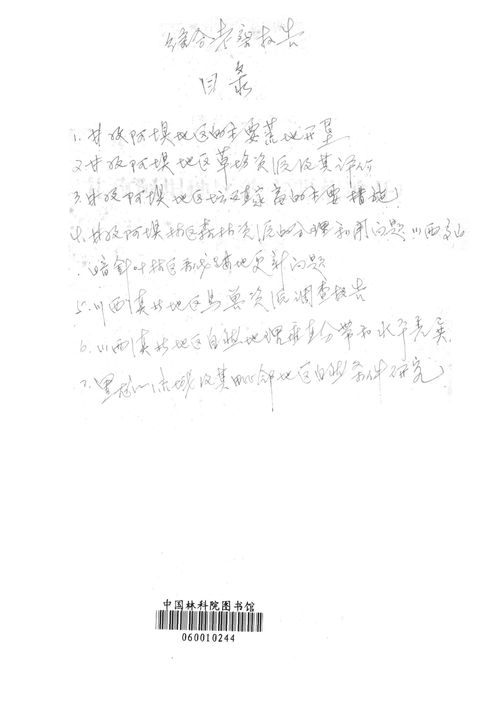 综合考察报告
目录
1. 甘孜阿坝地区的主要荒地开垦
2. 甘孜阿坝地区草场资源及其评价
3. 甘孜阿坝地区发展家畜的主要措施
4. 甘孜阿坝林区森林资源的合理利用问题 川西高山
暗针叶林区采伐迹地更新问题
5. 川西滇北地区鸟兽资源调查报告
6. 川西滇北地区自然地理垂直分带和水平差异
7. 黑龙江流域及其毗邻地区自然条件研究
中国林科院图书馆
060010244